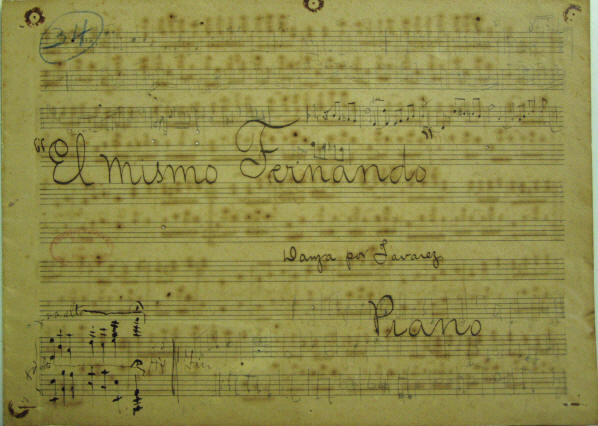 34
"El mismo Fernando
Danza por Tavarez
Piano